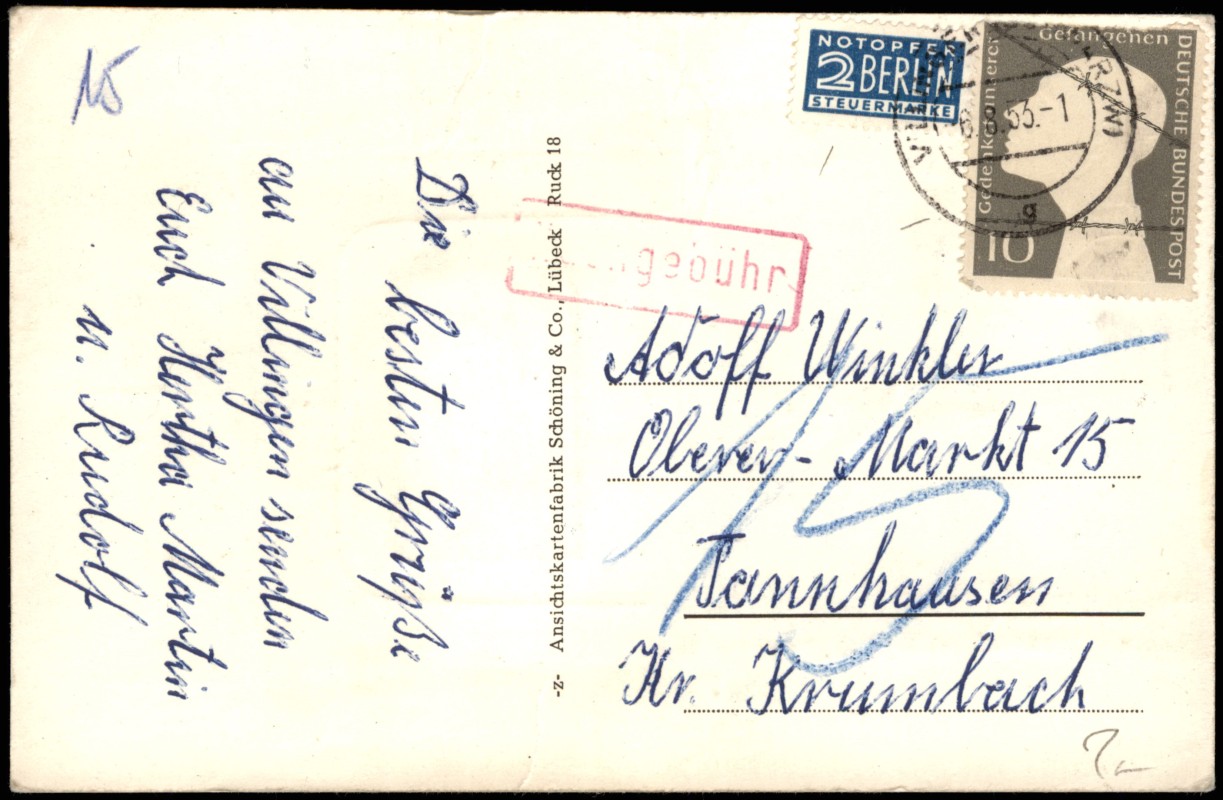 15
Die besten Grüße
aus Villingen senden
Euch Hertha Martin
u. Rudolf
-z- Ansichtskartenfabrik Schöning & Co., Lübeck Ruck 18
NOTOPFER
2 BERLIN
STEUERMARKE
6.8.53.-1
g
Gedenket unserer
Gefangenen
DEUTSCHE BUNDESPOST
10
gebühr
Adolf Winkler
Oberer-Markt 15
15
Tannhausen
Kr. Krumbach